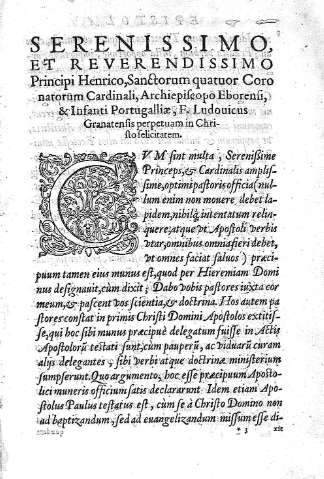 SERENISSIMO,
ET REVERENDISSIMO
Principi Henrico, Sanctorum quatuor Coro
natorum Cardinali, Archiepiscopo Eborensi,
& Infanti Portugalliæ, F. Ludouicus
Granatensis perpetuam in Chri-
sto felicitatem.
CVM sint multa, Serenissime
Princeps, & Cardinalis amplis-
sime, optimi pastoris officia (nul-
lum enim non mouere debet la-
pidem, nihilq; intentatum relin-
quere, atque vt Apostoli verbis
vtar, omnibus omnia fieri debet,
vt omnes faciat saluos) præci-
puum tamen eius munus est, quod per Hieremiam Domi
nus designauit, cùm dixit; Dabo vobis pastores iuxta cor
meum, & pascent vos scientia, & doctrina. Hos autem pa
stores constat in primis Christi Domini Apostolos extitis-
se, qui hoc sibi munus præcipuè delegatum fuisse in Actis
Apostolorũ testati sunt, cùm pauperũ, ac viduarũ curam
alijs delegantes, sibi verbi atque doctrinæ ministerium
sumpserunt. Quo argumento, hoc esse præcipuum Aposto-
lici muneris officium satis declararunt. Idem etiam Apo-
stolus Paulus testatus est, cùm se à Christo Domino non
ad baptizandum, sed ad euangelizandum missum esse di-
3 xit